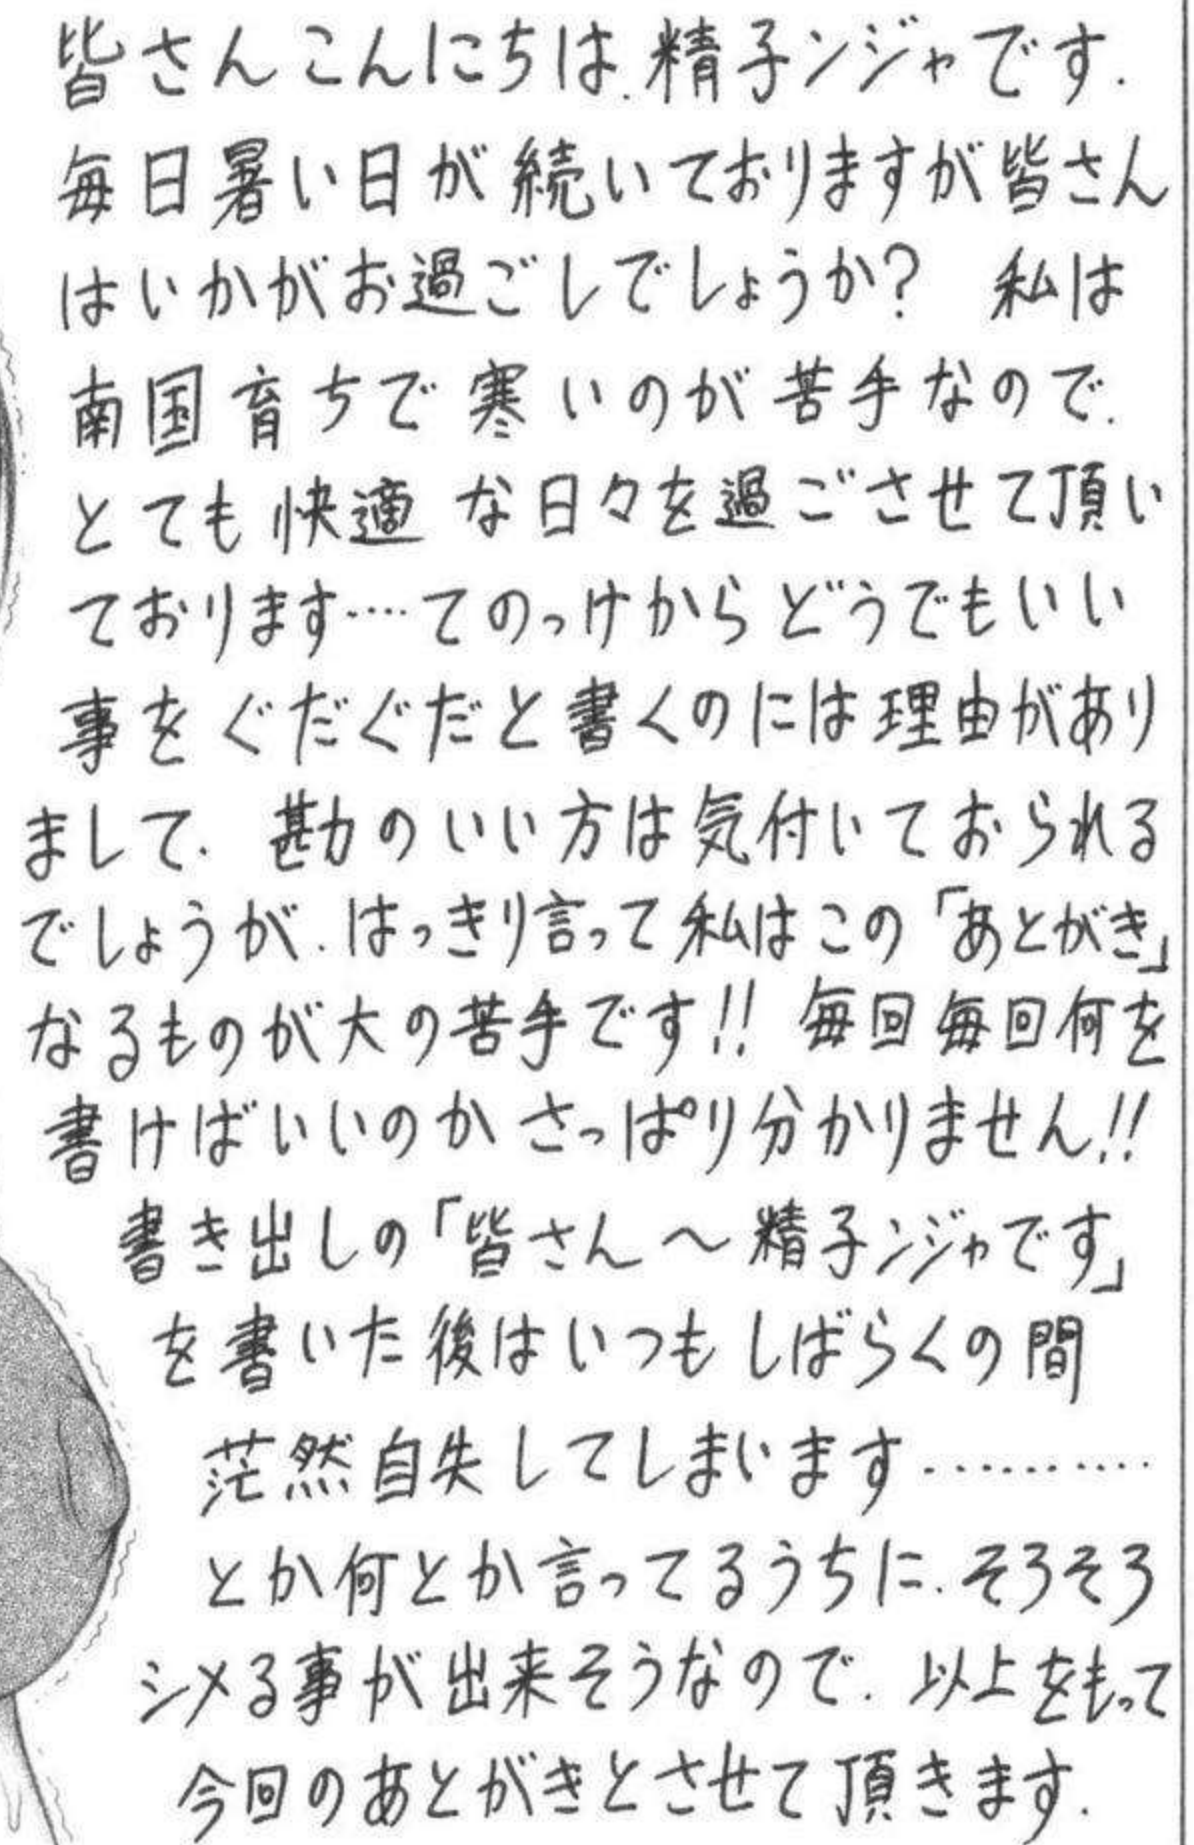 皆さんこんにちは、精子ンジャです.
毎日暑い日が続いておりますが皆さん
はいかがお過ごしでしょうか? 私は
南国育ちで寒いのが苦手なので、
とても快適な日々を過ごさせて頂い
ております‥‥てのっけからどうでもいい
事をぐだぐだと書くのには理由があり
まして、勘のいい方は気付いておられる
でしょうが、はっきり言って私はこの「あとがき」
なるものが大の苦手です!! 毎回毎回何を
書けばいいのかさっぱり分かりません!!
書き出しの「皆さん〜精子ンジャです」
を書いた後はいつもしばらくの間
茫然自失してしまいます‥‥‥‥‥
とか何とか言ってるうちに、そろそろ
シメる事が出来そうなので、以上をもって
今回のあとがきとさせて頂きます.